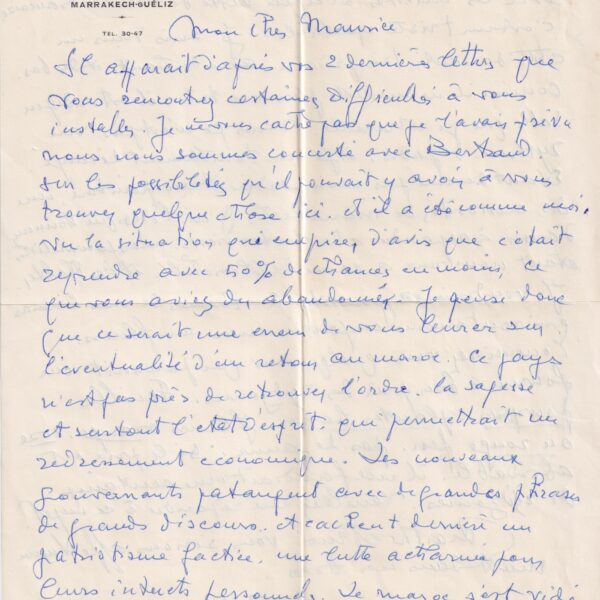 MARRAKECH-GUÉLIZ
TEL. 30-47
Mon cher Maurice
Il apparait d'après vos 2 dernières lettres que
vous rencontrez certaines difficultés à vous
installer. Je ne vous cache pas que je l'avais prévu
nous nous sommes concerté avec Bertrand.
sur les possibilités qu'il pouvait y avoir à vous
trouver quelque chose ici. et il a été comme moi,
vu la situation qui empire, d'avis que c'était
reprendre avec 50% de chances en moins, ce
que vous aviez du abandonner. Je pense donc
que ce serait une erreur de vous leurrer sur
l'éventualité d'un retour au maroc. Ce pays
n'est pas près de retrouver l'ordre. la sagesse
et surtout l'etat d'esprit. qui permettrait un
redressement économique. Les nouveaux
gouvernants pataugent avec de grandes phrases
de grands discours. et cachent derrière un
patriotisme factice, une lutte acharnée pour
leurs interets personnels. Le maroc s'est vidé